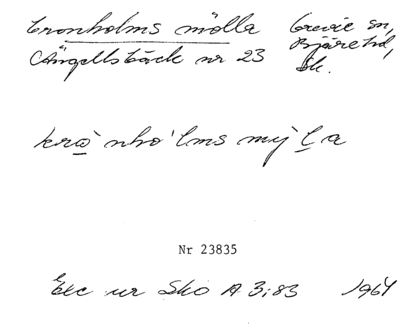 Cronholms mölla Grevie sn,
Ängelsbäck nr 23 Bjäre hd,
Sk.
krånho`lms my`la
Nr 23835
Exc ur Sko A 3:83 1964